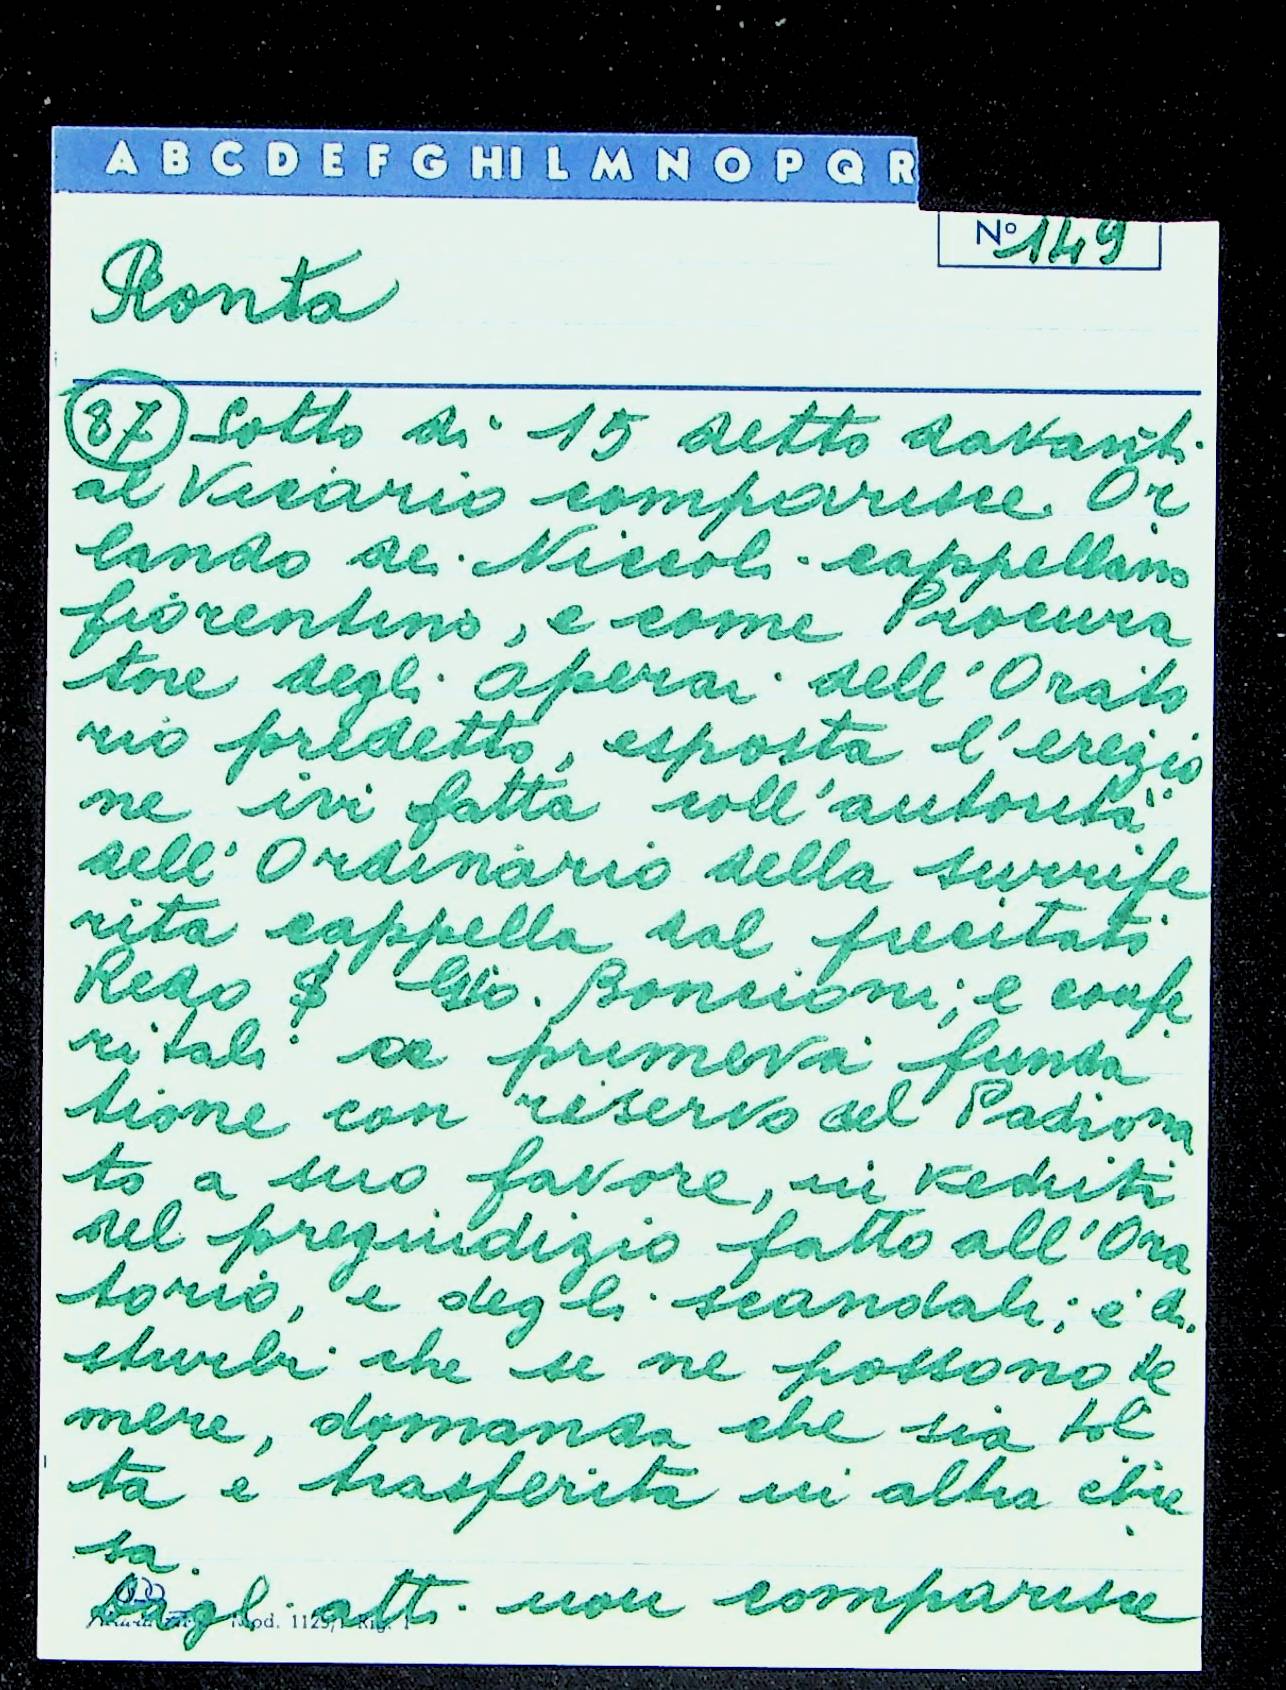 A B C D E F G HI L M N O P Q R
Nº 149
Ronta
87 Sotto di 15 detto davanti
al Vicario comparisce Or
lando di Niccoli cappellano
fiorentino, e come Procura
tore degli Operai dell'Orato
rio predetto, esposta l'erezio
ne ivi fatta coll'autorità
dell'Ordinario della surrife
rita cappella dal precitato
Redo Gio. Boncioni; e confe
ritali a primeva funda
tione con riservo del Padrona
to a suo favore, in veduta
del pregiudizio fatto all'Ora
torio, e degli scandali; e di
sturbi che se ne possono te
mere, domanda che sia tol
ta e trasferita in altra chie
sa.
Dagli atti non comparisce
Mod. 1129/1 Rig. 1